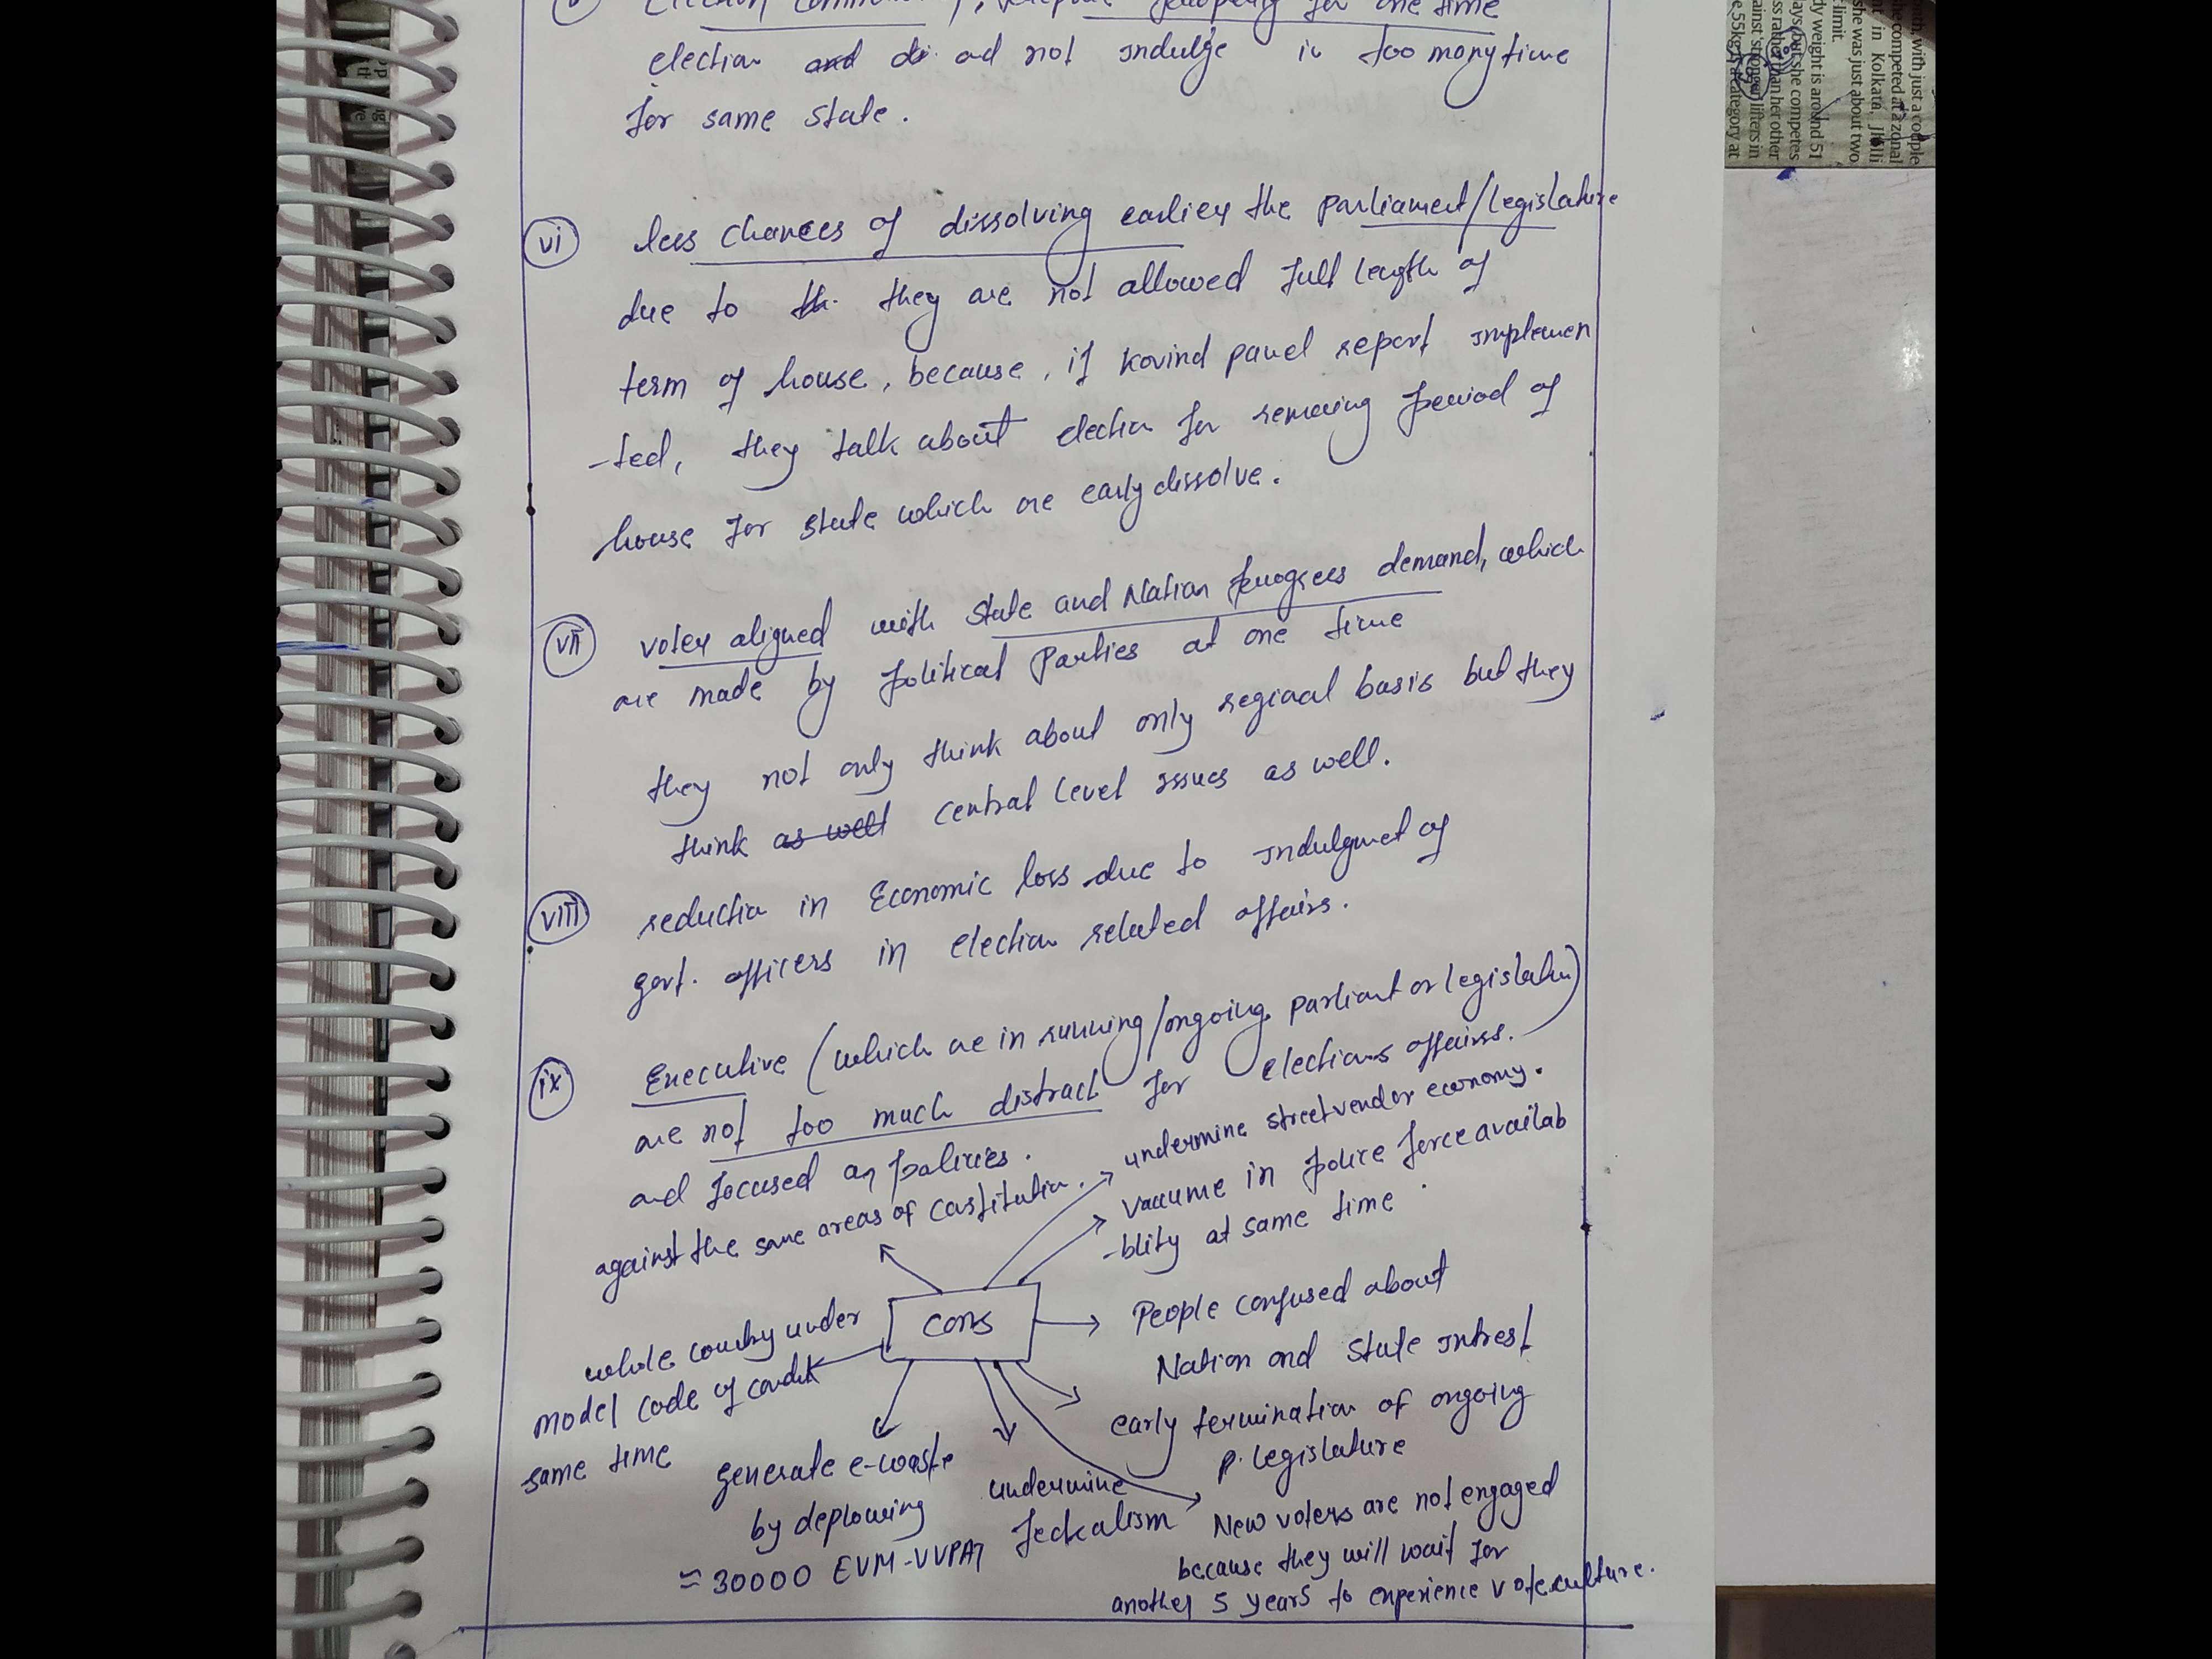 Election Commission, prepare properly for one time
election and di ad not indulge in too many time
for same state.
(vi) less chances of dissolving earlier the parliament/legislature
due to th. they are not allowed full length of
term of house, because, if kovind panel report implemen
-ted, they talk about election for remaing period of
house for state which are early dissolve.
(vii) voter aligned with state and Nation progrees demand, which
are made by political parties at one time
they not only think about only regional basis but they
think as well central level issues as well.
(viii) reduction in Economic loss due to indulgmet of
govt. officers in election related affairs.
(ix) Executive (which are in running/ongoing parliamt or legislatu)
are not too much distract for elections affairs.
and focused on policies.
against the some areas of constitution.
undermine street vendor economy.
vaccume in police force availab
-blity at same time
Cons
People confused about
Nation and state intrest
whole country under
model code of conduct
same time
early termination of ongoing
p. legislature
generate e-waste
by deploying
≈ 30000 EVM-VVPAT
undermine
fedealism
New voters are not engaged
because they will wait for
another 5 years to experience vote culture.
uth, with just a couple
he competed at a zonal
nt in Kolkata. Jhilli
she was just about two
limit.
dy weight is around 51
ays but she competes
ss rather than her other
ainst stronger lifters in
e 55kg category at